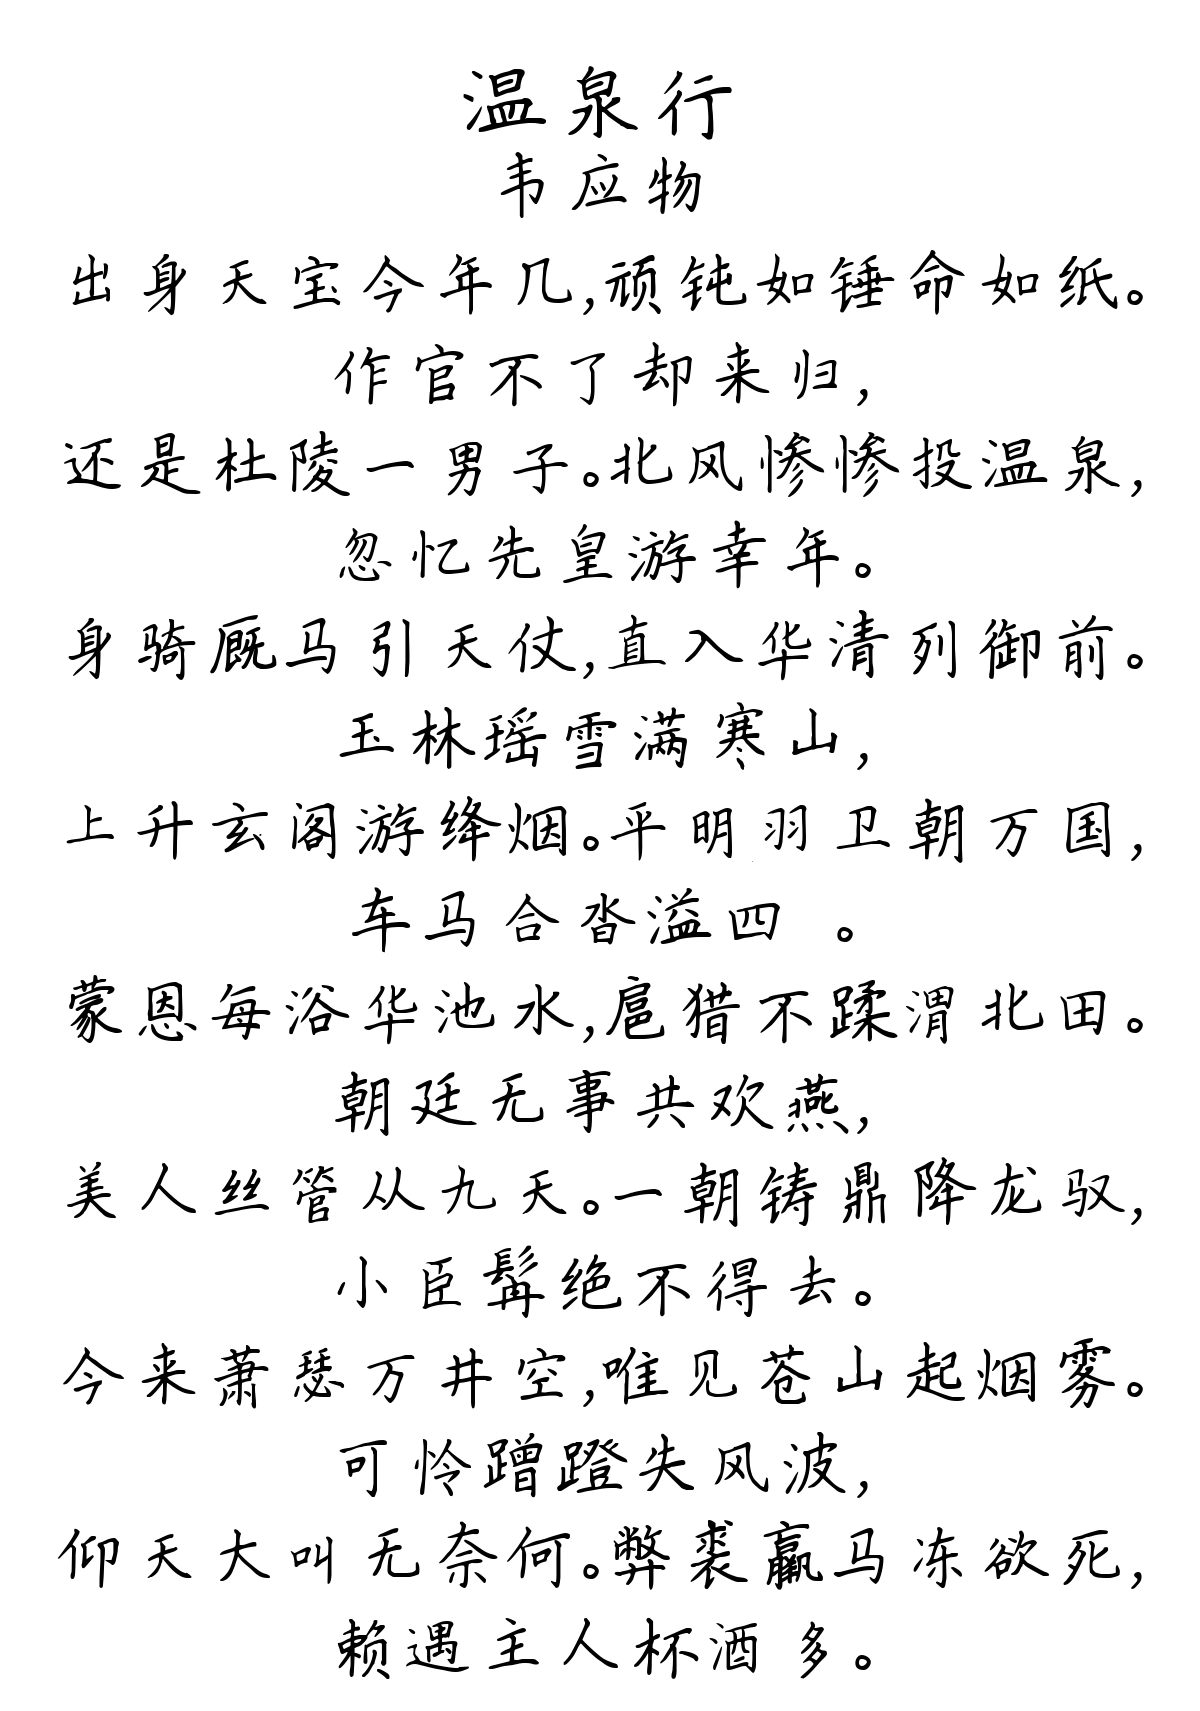 温泉行
韦应物
出身天宝今年几,顽钝如锤命如纸。
作官不了却来归,
还是杜陵一男子。北风惨惨投温泉,
忽忆先皇游幸年。
身骑厩马引天仗,直入华清列御前。
玉林瑶雪满寒山,
上升玄阁游绛烟。平明羽卫朝万国,
车马合沓溢四 。
蒙恩每浴华池水,扈猎不蹂渭北田。
朝廷无事共欢燕,
美人丝管从九天。一朝铸鼎降龙驭,
小臣髯绝不得去。
今来萧瑟万井空,唯见苍山起烟雾。
可怜蹭蹬失风波,
仰天大叫无奈何。弊裘羸马冻欲死,
赖遇主人杯酒多。